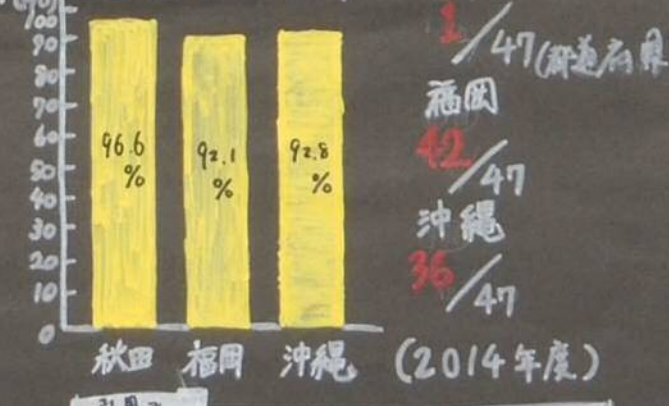 (%)
100
90
80
70
60
50
40
30
20
10
0
96.6
%
92.1
%
92.8
%
秋田
福岡
沖縄
1/47(都道府県
福岡
42/47
沖縄
36/47
(2014年度)